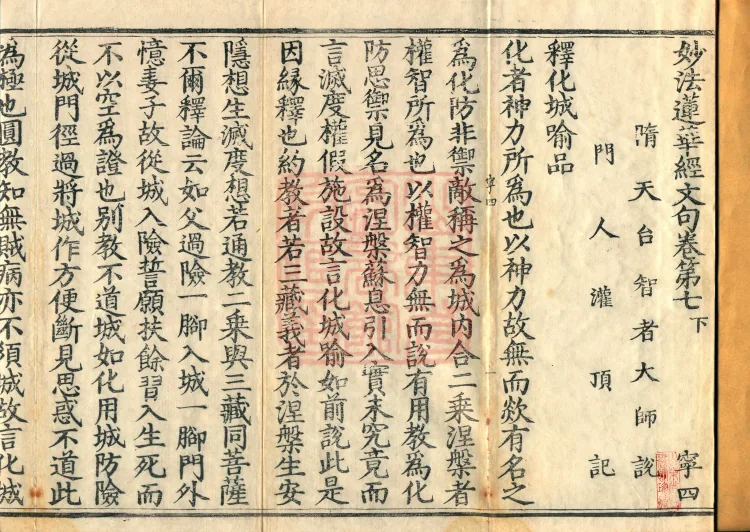 妙法蓮華經文句卷第七下 寧四
隋天台智者大師說
門人灌頂記
釋化城喻品
化者神力所為也以神力故無而欻有名之
為化防非禦敵稱之為城內合二乘涅槃者
寧四
權智所為也以權智力無而說有用教為化
防思禦見名為涅槃蘇息引入實未究竟而
言滅度權假施設故言化城喻如前說此是
因緣釋也約教者若三藏義者於涅槃生安
隱想生滅度想若通教二乘與三藏同菩薩
不爾釋論云如父過險一腳入城一腳門外
憶妻子故從城入險誓願扶餘習入生死而
不以空為證也別教不道城如化用城防險
從城門徑過將城作方便斷見思惑不道此
為極也圓教知無賊病亦不須城故言化城